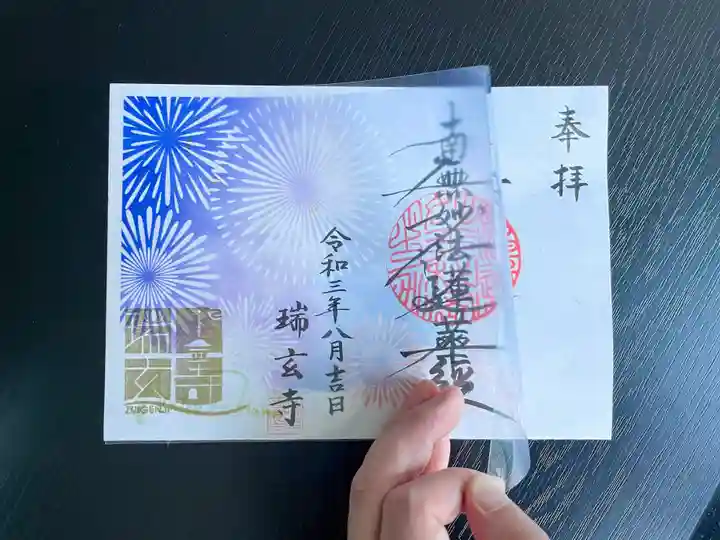 奉拝
南無妙法蓮華経
令和三年八月吉日
瑞玄寺
瑞玄